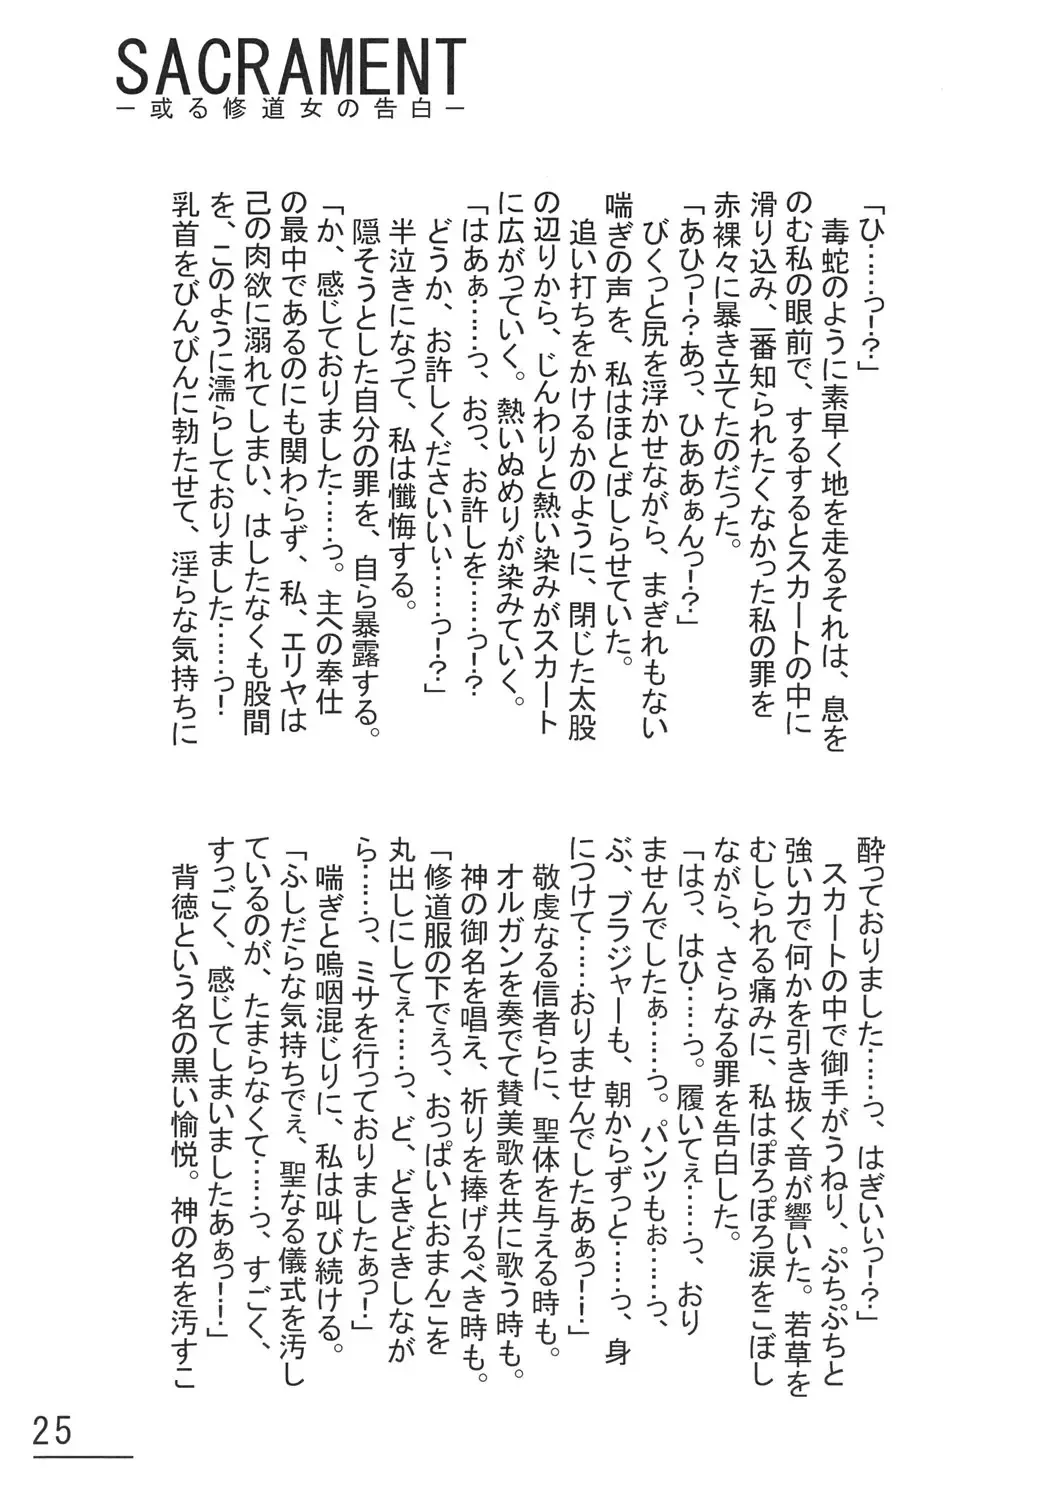 SACRAMENT
－或る修道女の告白－
「ひ……っ！？」
毒蛇のように素早く地を走るそれは、息を
のむ私の眼前で、するするとスカートの中に
滑り込み、一番知られたくなかった私の罪を
赤裸々に暴き立てたのだった。
「あひっ！？あっ、ひああぁんっ！？」
びくっと尻を浮かせながら、まぎれもない
喘ぎの声を、私はほとばしらせていた。
追い打ちをかけるかのように、閉じた太股
の辺りから、じんわりと熱い染みがスカート
に広がっていく。熱いぬめりが染みていく。
「はあぁ……っ、おっ、お許しを……っ！？
どうか、お許しくださいいぃ……っ！？」
半泣きになって、私は懺悔する。
隠そうとした自分の罪を、自ら暴露する。
「か、感じておりました……っ。主への奉仕
の最中であるのにも関わらず、私、エリヤは
己の肉欲に溺れてしまい、はしたなくも股間
を、このように濡らしておりました……っ！
乳首をびんびんに勃たせて、淫らな気持ちに
酔っておりました……っ、はぎいいっ！？」
スカートの中で御手がうねり、ぷちぷちと
強い力で何かを引き抜く音が響いた。若草を
むしられる痛みに、私はぽろぽろ涙をこぼし
ながら、さらなる罪を告白した。
「はっ、はひ……っ。履いてぇ……っ、おり
ませんでしたぁ……っ。パンツもぉ……っ、
ぶ、ブラジャーも、朝からずっと……っ、身
につけて……おりませんでしたあぁっ！！」
敬虔なる信者らに、聖体を与える時も。
オルガンを奏でて賛美歌を共に歌う時も。
神の御名を唱え、祈りを捧げるべき時も。
「修道服の下でぇっ、おっぱいとおまんこを
丸出しにしてぇ……っ、ど、どきどきしなが
ら……っ、ミサを行っておりましたぁっ！」
喘ぎと嗚咽混じりに、私は叫び続ける。
「ふしだらな気持ちでぇ、聖なる儀式を汚し
ているのが、たまらなくて……っ、すごく、
すっごく、感じてしまいましたあぁっ！！」
背徳という名の黒い愉悦。神の名を汚すこ
25